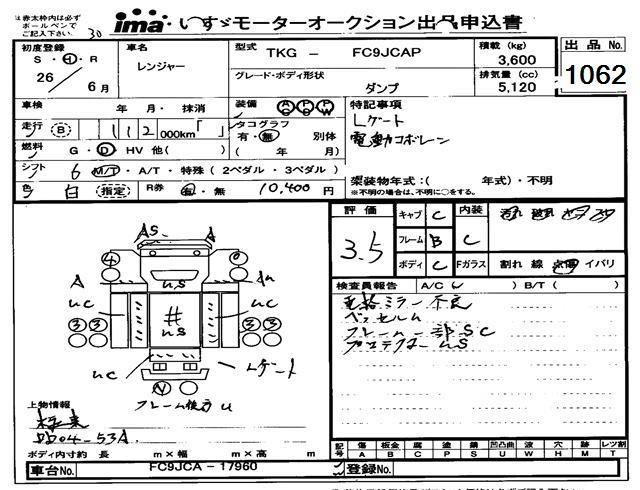 ※赤太枠内は必ず
ボールペンで
ご記入下さい。
30
ima いすゞモーターオークション出品申込書
初度登録 車名 型式 TKG － FC9JCAP 積載 (kg) 3,600 出品No.
S・H・R レンジャー
26年 6月 グレード・ボディ形状 ダンプ 排気量 (cc) 5,120 1062
車検 年 月・抹消 装備 特記事項
走行 B 112 000km「 」 タコグラフ 有・無 別体 Lゲート
燃料 G・D HV 他( ) ( 年 月) 電動コボレーン
シフト 6 M/T・A/T・特殊(2ペダル・3ペダル) 架装物年式：( 年式)・不明
色 白 (指定) R券 有・無 10,400円 ※不明の場合は、不明に○をする。
評価 3.5 キャブ C 内装 C
フレーム B
ボディ C Fガラス 割れ 線 点傷 イバリ
検査員報告 A/C( ) B/T( )
ミラー不良
ベッセルU
フレーム一部SC
プロテクターUS
AS
A US
UC # US UC
③③ ③③
UC Lゲート
フレーム後方U
上物情報
極東
DD04-53A
ボディ内寸約 長 m×幅 m×高 m
記号 傷 A 板金 B 腐 C 塗 P 錆 S 凹凸曲 U 波 W 穴 H 跡 M レツ割 T
車台No. FC9JCA－17960 登録No.